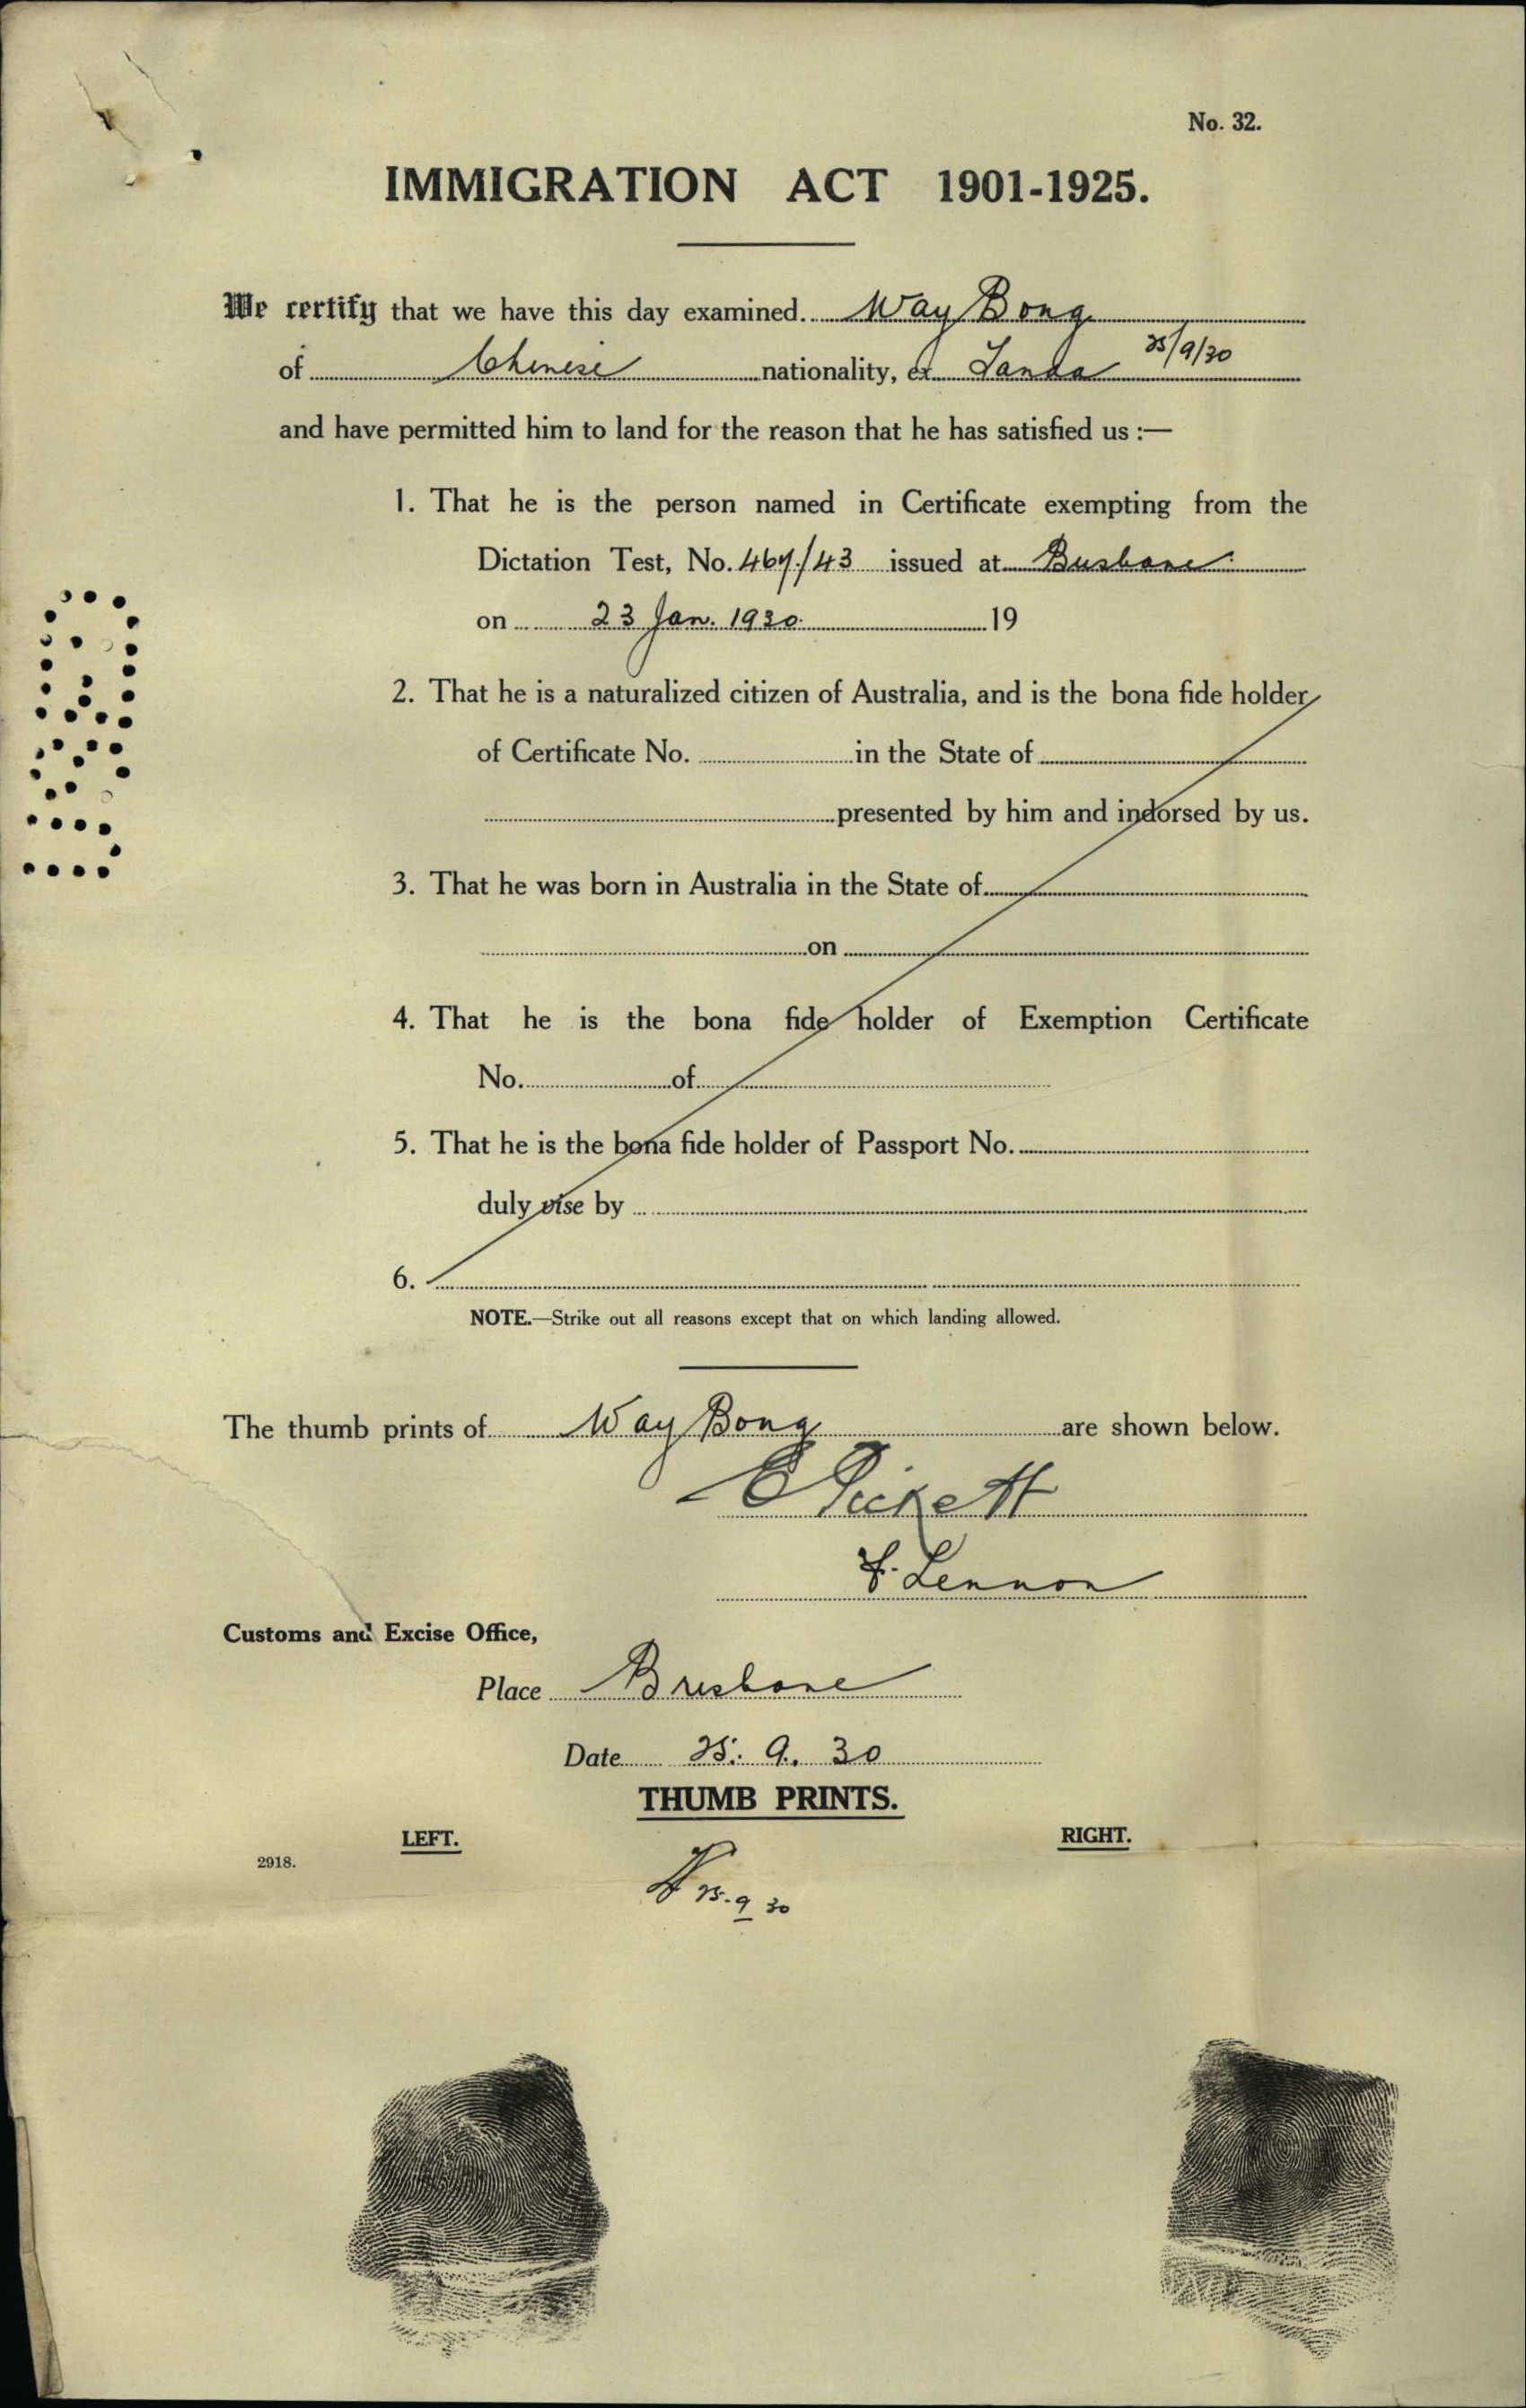 No. 32.
IMMIGRATION ACT 1901-1925.
We certify that we have this day examined Way Bong
of Chinese nationality, ex Tanda 25/9/30
and have permitted him to land for the reason that he has satisfied us :—
1. That he is the person named in Certificate exempting from the
Dictation Test, No. 467/43 issued at Brisbane
on 23 Jan. 1930. 19
2. That he is a naturalized citizen of Australia, and is the bona fide holder
of Certificate No. in the State of
presented by him and indorsed by us.
3. That he was born in Australia in the State of
on
4. That he is the bona fide holder of Exemption Certificate
No. of
5. That he is the bona fide holder of Passport No.
duly vise by
6.
NOTE.—Strike out all reasons except that on which landing allowed.
The thumb prints of Way Bong are shown below.
E Pickett
F. Lennon
Customs and Excise Office,
Place Brisbane
Date 25. 9. 30
THUMB PRINTS.
LEFT. RIGHT.
2918.
25.9 30